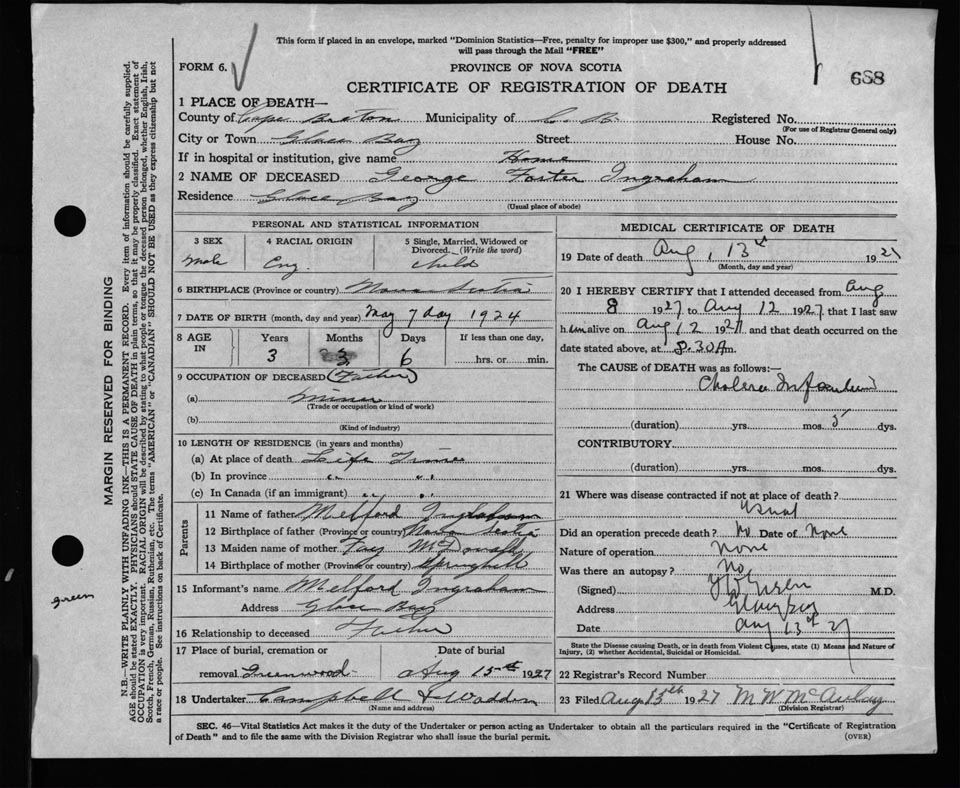 This form if placed in an envelope, marked "Dominion Statistics—Free, penalty for improper use $300," and properly addressed
will pass through the Mail "FREE"
FORM 6.
PROVINCE OF NOVA SCOTIA
688
CERTIFICATE OF REGISTRATION OF DEATH
1 PLACE OF DEATH—
County of Cape Breton Municipality of C. B. Registered No.
(For use of Registrar General only)
City or Town Glace Bay Street House No.
If in hospital or institution, give name Home
2 NAME OF DECEASED George Foster Ingraham
Residence Glace Bay
(Usual place of abode)
PERSONAL AND STATISTICAL INFORMATION
3 SEX 4 RACIAL ORIGIN 5 Single, Married, Widowed or
Divorced. (Write the word)
Male Eng. Child
6 BIRTHPLACE (Province or country) Nova Scotia
7 DATE OF BIRTH (month, day and year) May 7 day 1924
8 AGE IN Years Months Days If less than one day,
3 3 6 hrs. or min.
9 OCCUPATION OF DECEASED (Father)
(a) Miner
(Trade or occupation or kind of work)
(b)
(Kind of industry)
10 LENGTH OF RESIDENCE (in years and months)
(a) At place of death Life Time
(b) In province " "
(c) In Canada (if an immigrant) " "
Parents
11 Name of father Melford Ingraham
12 Birthplace of father (Province or country) Nova Scotia
13 Maiden name of mother Fay McDonald
14 Birthplace of mother (Province or country) Springhill
15 Informant's name Melford Ingraham
Address Glace Bay
16 Relationship to deceased Father
17 Place of burial, cremation or Date of burial
removal Greenwood Aug 15th 1927
18 Undertaker Campbell & Wadden
(Name and address)
MEDICAL CERTIFICATE OF DEATH
19 Date of death Aug, 13th 1927
(Month, day and year)
20 I HEREBY CERTIFY that I attended deceased from Aug
8 1927 to Aug 12 1927 that I last saw
him alive on Aug 12 1927 and that death occurred on the
date stated above, at 8.30 A m.
The CAUSE of DEATH was as follows:—
Cholera Infantum
(duration) yrs. mos. 5 dys.
CONTRIBUTORY
(duration) yrs. mos. dys.
21 Where was disease contracted if not at place of death?
Usual
Did an operation precede death? No Date of None
Nature of operation None
Was there an autopsy? No
(Signed) M.D.
Address Glace Bay
Date Aug 13th 27
State the Disease causing Death, or in death from Violent Causes, state (1) Means and Nature of
Injury, (2) whether Accidental, Suicidal or Homicidal.
22 Registrar's Record Number
23 Filed Aug 13th 1927 M W McAulay
(Division Registrar)
SEC. 46—Vital Statistics Act makes it the duty of the Undertaker or person acting as Undertaker to obtain all the particulars required in the "Certificate of Registration
of Death" and to file the same with the Division Registrar who shall issue the burial permit. (OVER)
MARGIN RESERVED FOR BINDING
N.B.—WRITE PLAINLY WITH UNFADING INK—THIS IS A PERMANENT RECORD. Every item of information should be carefully supplied.
AGE should be stated EXACTLY. PHYSICIANS should STATE CAUSE OF DEATH in plain terms, so that it may be properly classified. Exact statement of
OCCUPATION is very important. RACIAL ORIGIN will be described by stating to what people or tongue the deceased person belonged, whether English, Irish,
Scotch, French, German, Russian, Ruthenian, etc. The terms "AMERICAN" or "CANADIAN" SHOULD NOT BE USED as they express citizenship but not
a race or people. See instructions on back of Certificate.
green